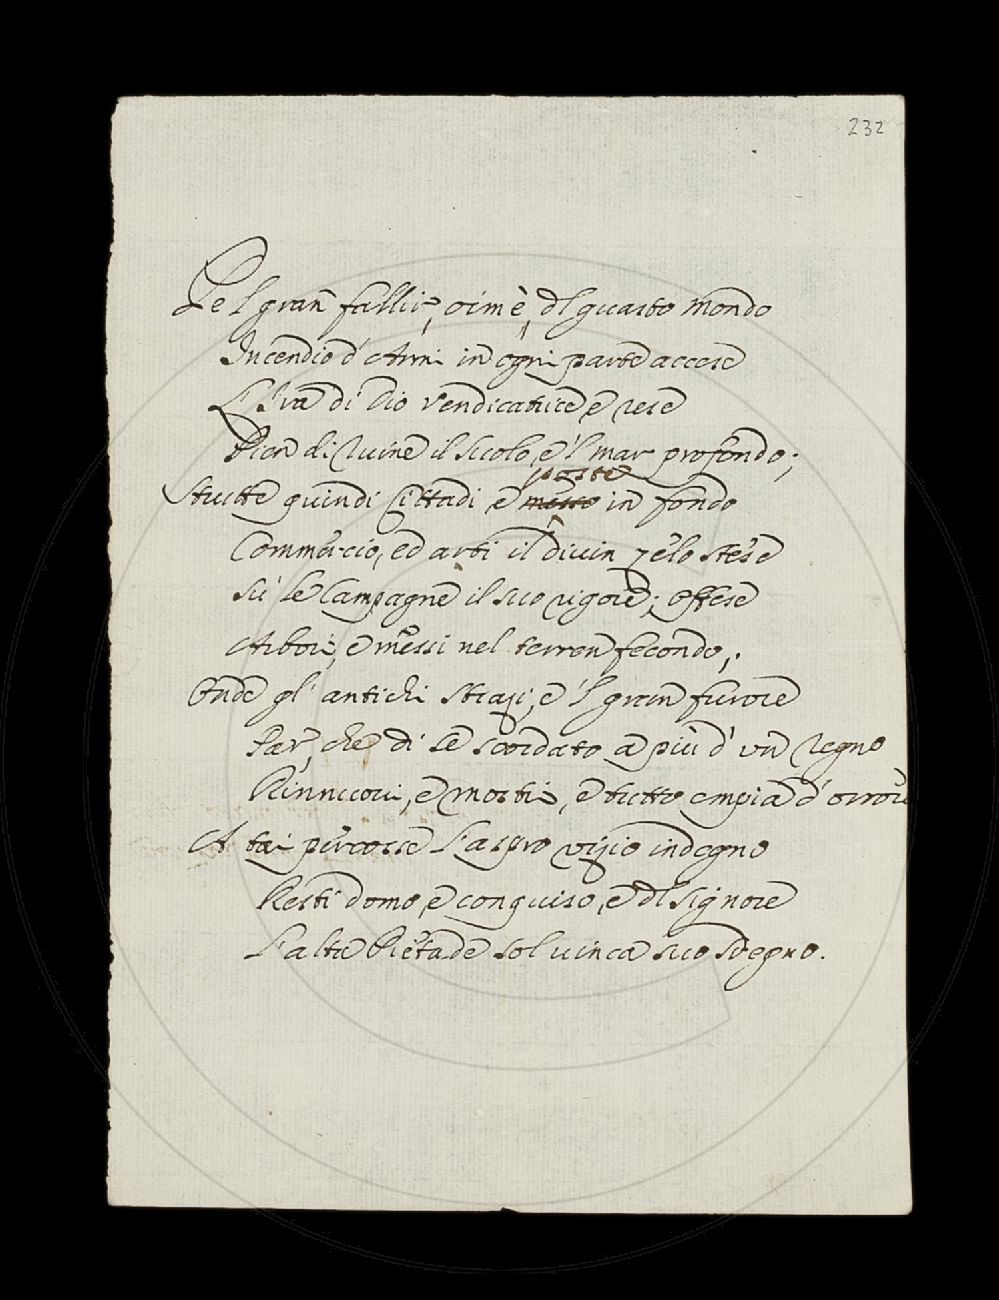 232
Pe'l gran fallir, oimè, dl guasto Mondo
Incendio d'Armi in ogni parte accese
L'Ira di Dio vendicatrice, e rese
Pien di Ruine il suolo, e'l mar profondo;
Strutte quindi Cittadi e poste
messo in fondo
Commercio, ed arti il divin zelo stese
Sù le Campagne il suo vigore; offese
Arbori, e messi nel terren fecondo;
Onde gl'antichi strazi, e'l gran furore
Par, che di se scordato a più d'un Regno
Rinnuovi, e morti, e tutto empia d'orrore
A tai percosse l'aspro vizio indegno
Resti domo, e conquiso, e dl Signore
L'alta Pietade sol vinca suo sdegno.